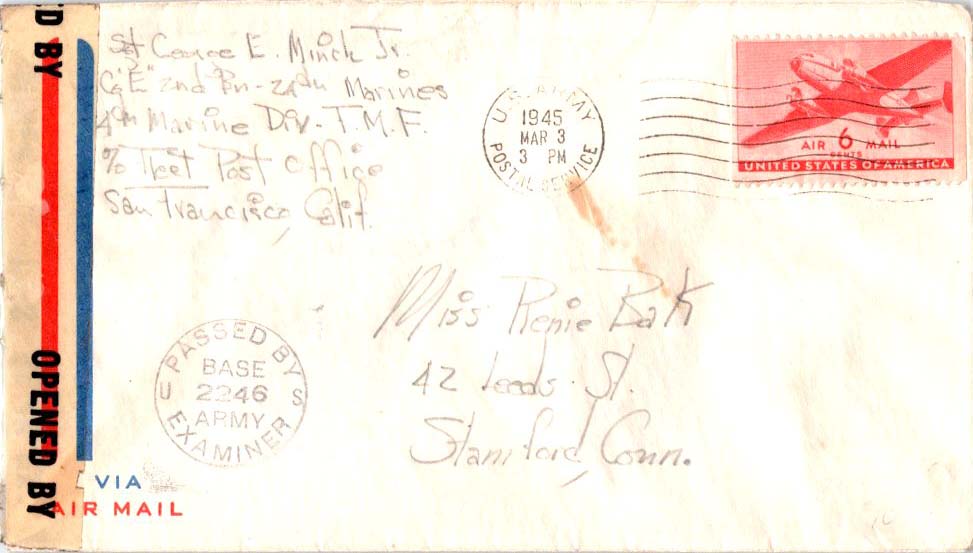 Sgt George E. Minch Jr.
Co "E" 2nd Bn - 24th Marines
4th Marine Div - F.M.F.
c/o Fleet Post Office
San Francisco, Calif.
U.S. ARMY
1945
MAR 3
3 PM
POSTAL SERVICE
AIR 6 MAIL
CENTS
UNITED STATES OF AMERICA
Miss Renie Bak
42 Leeds St.
Stamford, Conn.
PASSED BY
BASE
2246
U S
ARMY
EXAMINER
D BY
OPENED BY
VIA
AIR MAIL